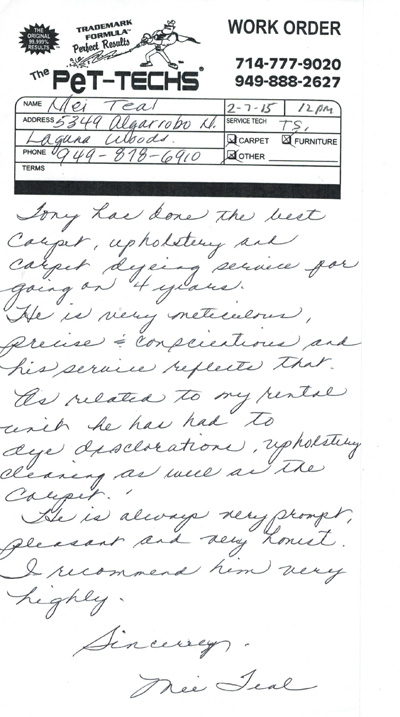 THE
ORIGINAL
99.999%
RESULTS
TRADEMARK
FORMULA™
Perfect Results
The PeT-TECHS
WORK ORDER
714-777-9020
949-888-2627
NAME Mei Teal 2-7-15 12pm
ADDRESS 5349 Algarrobo N. SERVICE TECH T.S,
Laguna Woods. CARPET FURNITURE
PHONE 949-878-6910 OTHER
TERMS
Tony has done the best
carpet, upholstery and
carpet dyeing service for
going on 4 years.
He is very meticulous,
precise & conscientious and
his service reflects that.
As related to my rental
unit he has had to
dye discolorations, upholstery
cleaning as well as the
carpet.
He is always very prompt,
pleasant and very honest.
I recommend him very
highly.
Sincerely,
Mei Teal